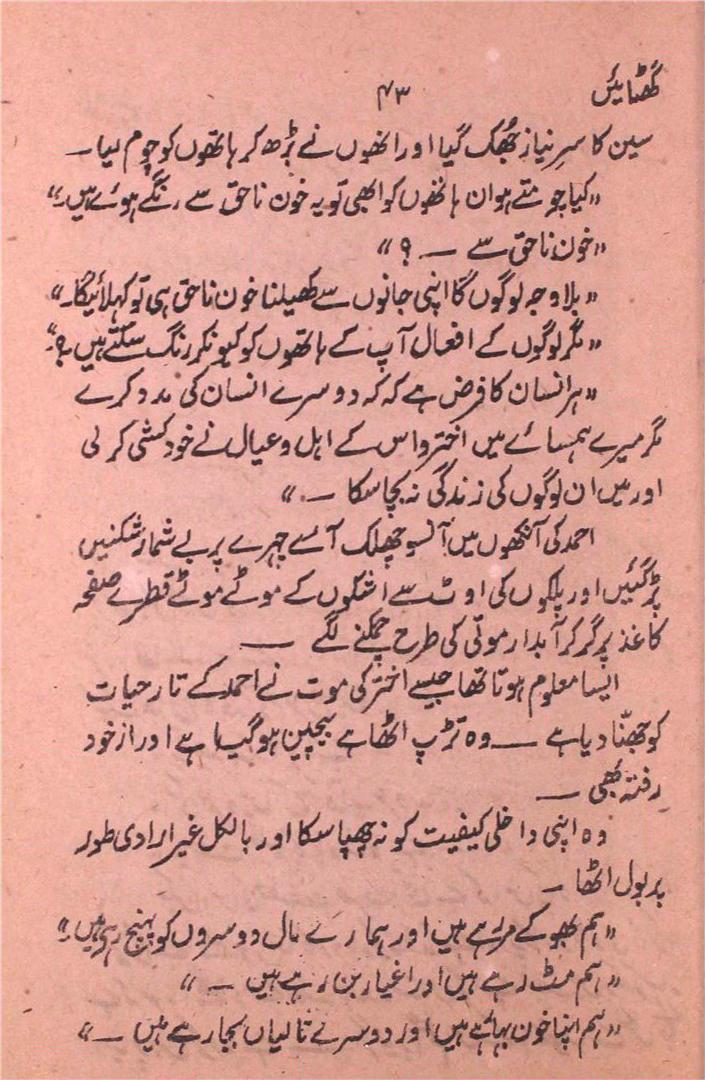 گھٹائیں ۴۳
سین کا سرِ نیاز جُھک گیا اور انھوں نے بڑھ کر ہاتھوں کو چوم لیا ــ
”کیا چومتے ہو ان ہاتھوں کو ابھی تو یہ خون ناحق سے رنگے ہوئے ہیں۔“
”خون ناحق سے ــ ؟“
”بلا وجہ لوگوں کا اپنی جانوں سے کھیلنا خون ناحق ہی تو کہلائیگا۔“
”مگر لوگوں کے افعال آپ کے ہاتھوں کو کیونکر رنگ سکتے ہیں ؟“
”ہر انسان کا فرض ہے کہ کہ دوسرے انسان کی مدد کرے
مگر میرے ہمسائے میں اختر و اس کے اہل و عیال نے خودکشی کر لی
اور میں ان لوگوں کی زندگی نہ بچا سکا ــ“
احمد کی آنکھوں میں آنسو چھلک آئے چہرے پر بے شمار شکنیں
پڑ گئیں اور پلکوں کی اوٹ سے اشکوں کے موٹے موٹے قطرے صفحہ
کاغذ پر گر کر آبدار موتی کی طرح چمکنے لگے ــ
ایسا معلوم ہوتا تھا جیسے اختر کی موت نے احمد کے تار حیات
کو جھنّا دیا ہے ــ وہ تڑپ اٹھا ہے بیچین ہو گیا ہے اور از خود
رفتہ بھی ــ
وہ اپنی داخلی کیفیت کو نہ چھپا سکا اور بالکل غیر ارادی طور
پر بول اٹھا ــ
”ہم بھوکے مر رہے ہیں اور ہمارے مال دوسروں کو پہنچ رہی ہیں۔“
”ہم مٹ رہے ہیں اور اغیار بن رہے ہیں ــ“
”ہم اپنا خون بہاتے ہیں اور دوسرے تالیاں بجا رہے ہیں ــ“